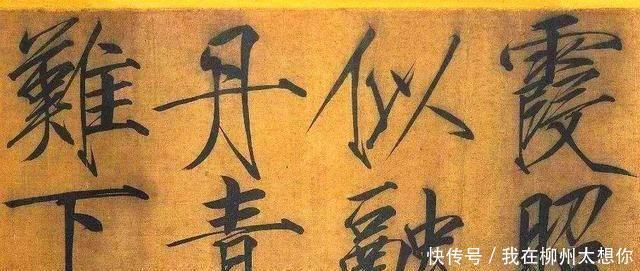 霞照
似融
丹青
難下
快传号 / 我在柳州太想你